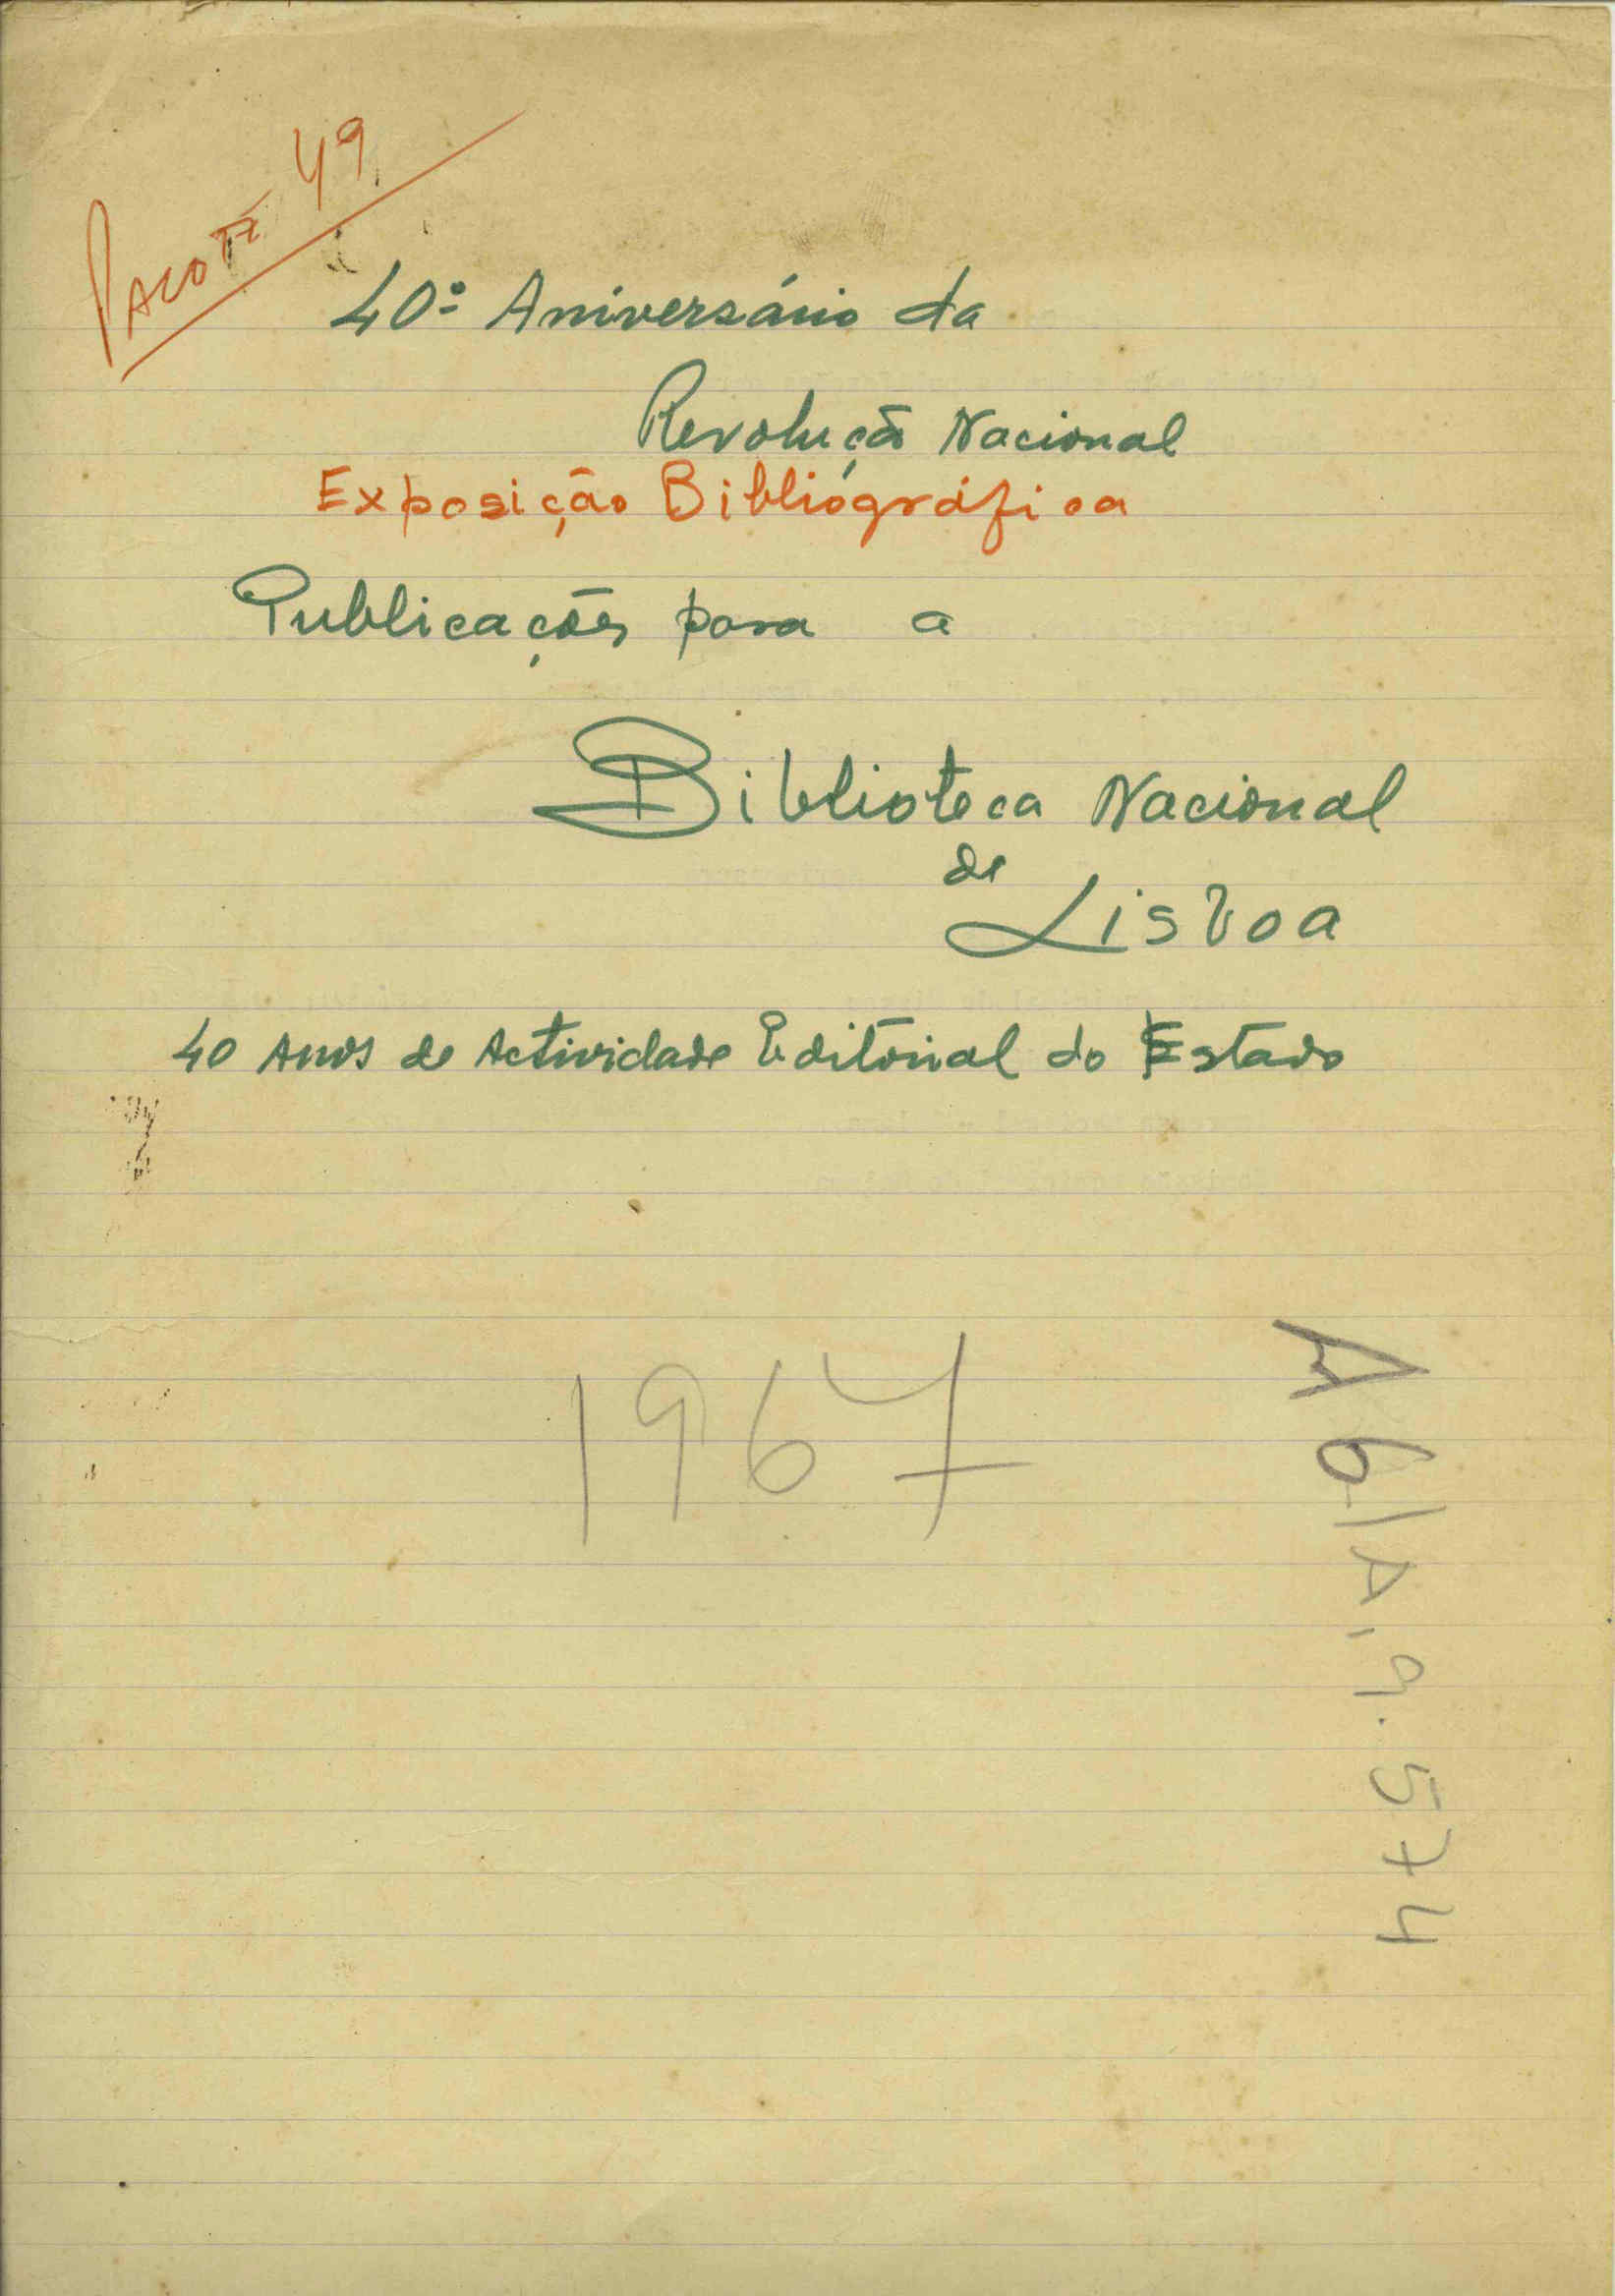 Pacote 49
40º Aniversário da
Revolução Nacional
Exposição Bibliográfica
Publicações para a
Biblioteca Nacional
de
Lisboa
40 Anos de Actividade Editorial do Estado
1967
A6/A,9.574